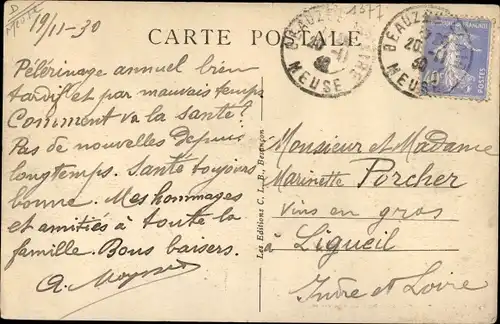 D
Meuse
1377
19/11-30
CARTE POSTALE
Pélerinage annuel bien
tardif et par mauvais temps
Comment va la santé?
Pas de nouvelles depuis
longtemps. Santé toujours
bonne. Mes hommages
et amitiés à toute la
famille. Bons baisers.
A.
Les Editions C. L. B., Besançon
BEAUZÉE
MEUSE
BEAUZÉE
20-11
30
MEUSE
40c
POSTES
Monsieur et Madame
Marinette Porcher
Vins en gros
à Ligueil
Indre et Loire